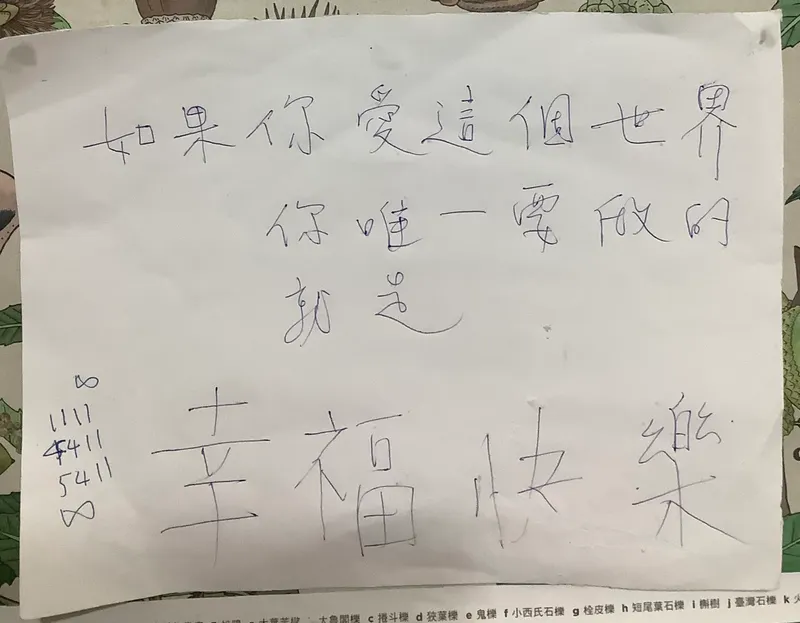 如果你愛這個世界
你唯一要做的
就是
幸福快樂
∞
1111
5411
∞
c 捲斗櫟 d 狹葉櫟 e 鬼櫟 f 小西氏石櫟 g 栓皮櫟 h 短尾葉石櫟 i 槲樹 j 臺灣石櫟 k